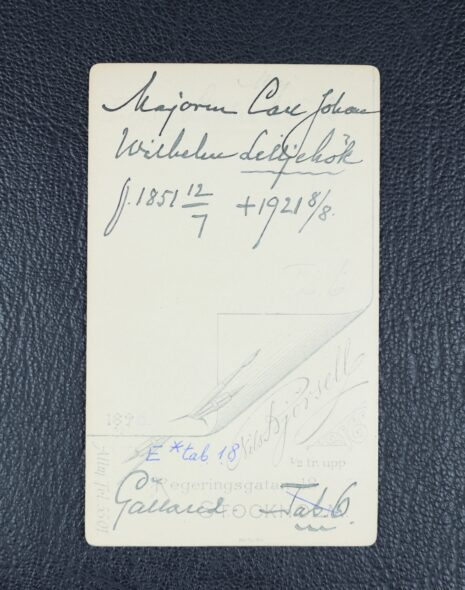 Majoren Carl Johan
Wilhelm Lilliehöök
f. 1851 12/7 +1921 8/8.
Tab 6
189
Nils Bjersell
E * tab 18
½ tr. upp
Regeringsgatan 19
Galland - Tab 6.
STOCKHOLM
Allm. Tel. 5301